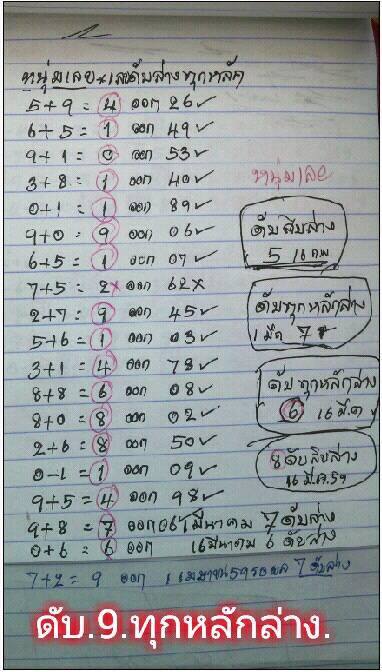 หนุ่มเลย * เลขดับล่างทุกหลัก
5+9 = 4 ออก 26✓
6+5 = 1 ออก 49✓
9+1 = 0 ออก 53✓
3+8 = 1 ออก 40✓
0+1 = 1 ออก 89✓
9+0 = 9 ออก 06✓
6+5 = 1 ออก 07✓
7+5 = 2× ออก 62×
2+7 = 9 ออก 45✓
5+6 = 1 ออก 03✓
3+1 = 4 ออก 78✓
8+8 = 6 ออก 08✓
8+0 = 8 ออก 02✓
2+6 = 8 ออก 50✓
0-1 = 1 ออก 09✓
9+5 = 4 ออก 98✓
9+8 = 7 ออก06 1มีนาคม 7 ดับล่าง
0+6 = 6 ออก 16มีนาคม 6 ดับล่าง
7+2 = 9 ออก 1 เมษายน59 7 ดับล่าง
หนุ่มเลย
ดับสิบล่าง
5 16 กพ
ดับทุกหลักล่าง
1 มีค 7
ดับทุกหลักล่าง
6 16 มีค
8ดับสิบล่าง
16 มี.ค.59
ดับ.9.ทุกหลักล่าง.